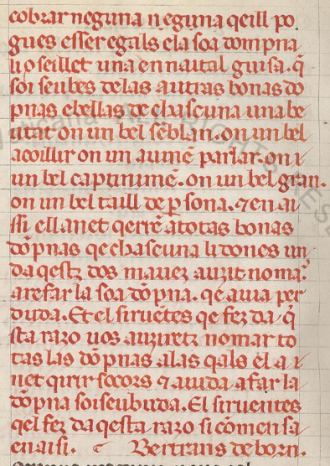 cobrar neguna neguna qeill po
gues esser egals ela soa dompna
uoseillet una en naital guisa. q
soiseubes de las autras bonas do
pnas e bellas de chascuna una be
utat on un bel sēblan. on un bel
acoillir on un auinē parlar. on
un bel captenimē. on un bel gran.
on un bel taill de ꝑsona. ⁊ en ai
si ell anet qerre a totas bonas
dōpnas qe chascuna li dones un
da qestz dos mavez auzit nomar
a refar la soa dōpna. qe auia per
duda. Et el siruētes qe fez da q
sta razo uos auziretz nomar to
tas las dōpnas a las qals el a
net qirir socors ⁊ aiuda a far la
dōpna soiseubuda. El siruentes
qel fez da qesta razo si comensa
en aisi. Bertrans de born.